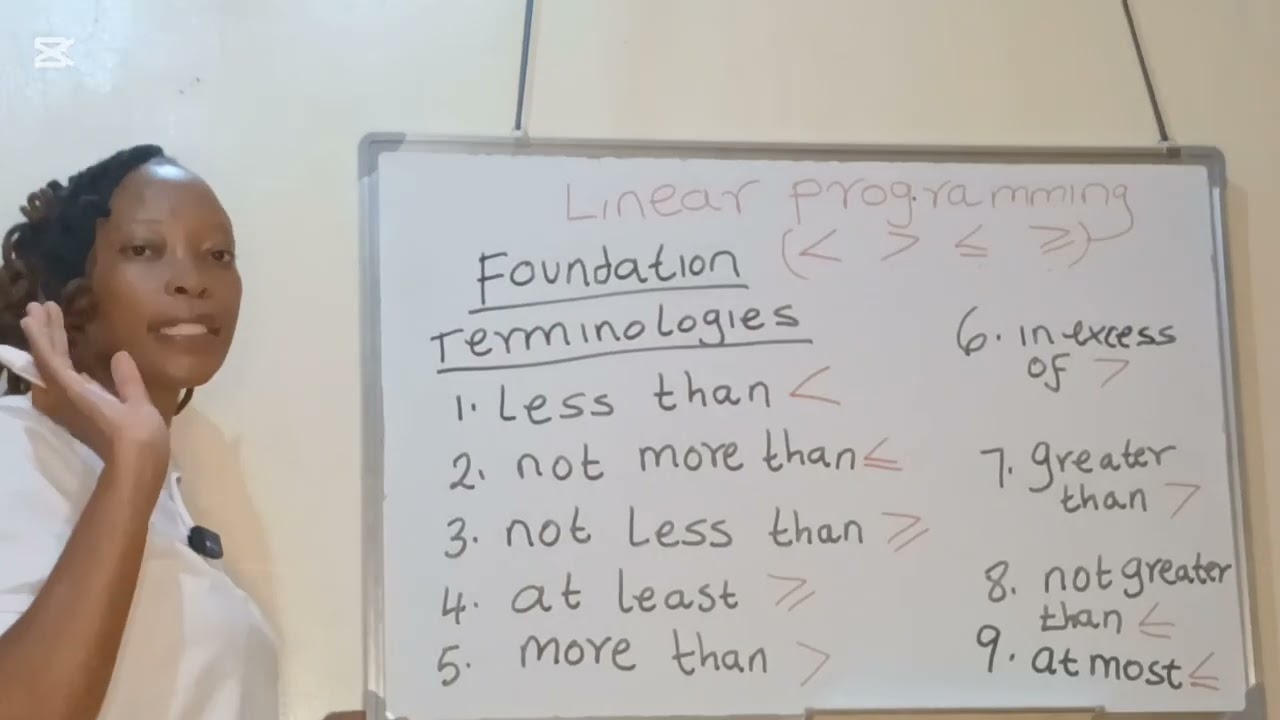 Linear programming
(< > ≤ ≥)
Foundation
Terminologies
1. Less than <
2. not more than ≤
3. not Less than ≥
4. at least ≥
5. more than >
6. in excess
of >
7. greater
than >
8. not greater
than ≤
9. at most ≤